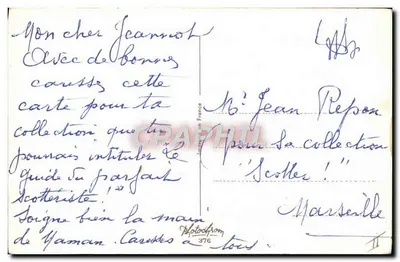 Mon cher Jeannot
Avec de bonnes
caresses cette
carte pour ta
collection que tu
pourrais intituler "Le
guide du parfait
scottériste!"
Soigne bien la main
de Maman. Caresses à tous.
Photochrom
376
en France
CPAPHIL
Mr Jean Repon
pour sa collection
"Scotter!"
Marseille
II